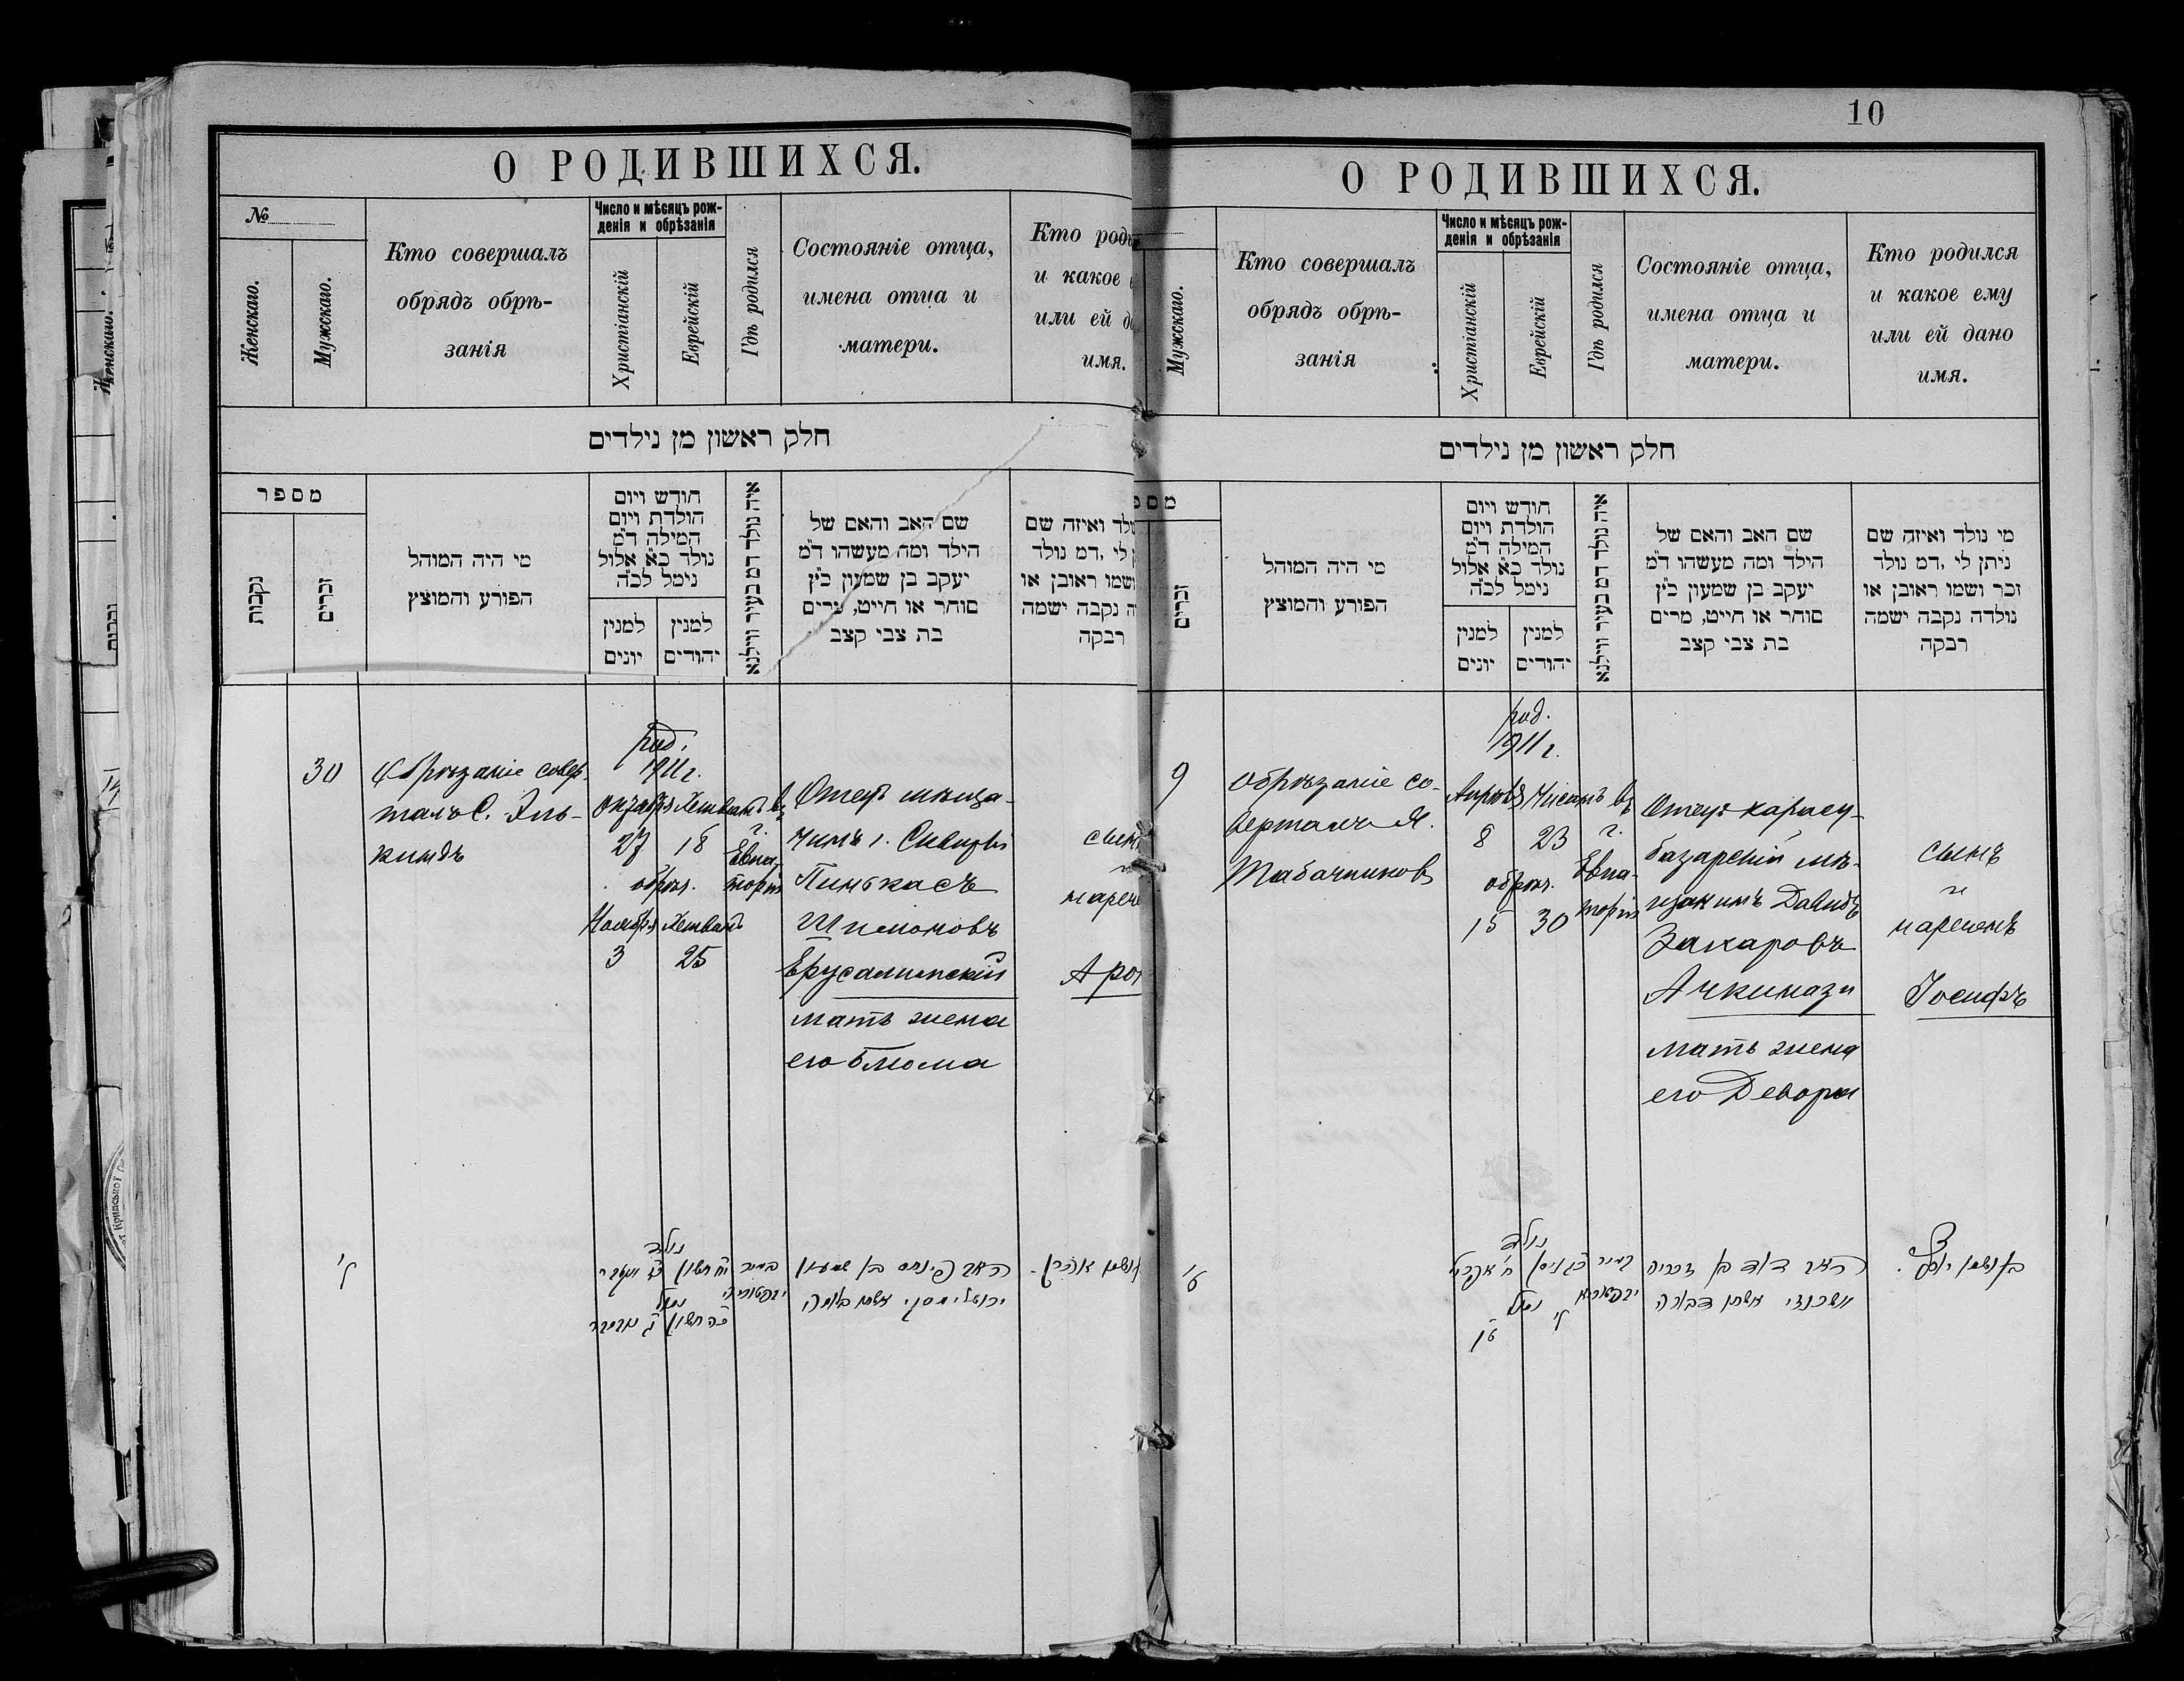 10
О РОДИВШИХСЯ.
№
Женскаго.
Мужскаго.
Кто совершалъ
обрядъ обрѣ-
занія
Число и мѣсяцъ рож-
денія и обрѣзанія
Христіанскій
Еврейскій
Гдѣ родился
Состояніе отца,
имена отца и
матери.
Кто роди
и какое
или ей д
имя.
חלק ראשון מן נילדים
מספר
נקבות
זכרים
מי היה המוהל
הפורע והמוצץ
חודש ויום
הולדת ויום
המילה ד״מ
נולד כ״א אלול
נימל לכ״ה
למנין
יונים
למנין
יהודים
איה נולד דמ בעיר ווילנא
שם האב והאם של
הילד ומה מעשהו ד״מ
יעקב בן שמעון כ״ץ
סוחר או חייט, מרים
בת צבי קצב
ולד ואיזה שם
לי ,דמ נולד
ושמו ראובן או
ה נקבה ישמה
רבקה
30
Обрѣзаніе совер-
шалъ С. Эль-
киндъ
род.
1911 г.
Октября
27
Хешванъ
18
обрѣз.
Ноября
3
Хешванъ
25
Въ
г.
Евпа-
торіи
Отецъ мѣща-
нинъ г.
Пинькасъ
Шимоновъ
Ерусалимскій
мать жена
его Блюма
сынъ
и
нарече
Арон
ל׳
נולד
י״ח חשון
נימול
כ״ה חשון
האב פינחס בן שמעון
ירושלימסקי אשתו בלומה
ושמו אהרן.
О РОДИВШИХСЯ.
Мужскаго.
Кто совершалъ
обрядъ обрѣ-
занія
Число и мѣсяцъ рож-
денія и обрѣзанія
Христіанскій
Еврейскій
Гдѣ родился
Состояніе отца,
имена отца и
матери.
Кто родился
и какое ему
или ей дано
имя.
חלק ראשון מן נילדים
זכרים
מי היה המוהל
הפורע והמוצץ
חודש ויום
הולדת ויום
המילה ד״מ
נולד כ״א אלול
נימל לכ״ה
למנין
יונים
למנין
יהודים
איה נולד דמ בעיר ווילנא
שם האב והאם של
הילד ומה מעשהו ד״מ
יעקב בן שמעון כ״ץ
סוחר או חייט, מרים
בת צבי קצב
מי נולד ואיזה שם
ניתן לי ,דמ נולד
זכר ושמו ראובן או
נולדה נקבה ישמה
רבקה
9
Обрѣзаніе со-
вершалъ Я.
Табачниковъ
род.
1911 г.
Апрѣля
8
Нисанъ
23
обрѣз.
15
30
Въ
г.
Евпа-
торіи
Отецъ карасу-
базарскій мѣ-
щанинъ Давидъ
Захаровъ
Ачкинази
мать жена
его Девора
сынъ
и
нареченъ
Іосифъ
ט׳
נולד
כ״ג ניסן
ח׳ אפריל
נימול
ל׳
ט״ו
האב דוד בן זכריה
אשכנזי אשתו דבורה
בן ושמו יוסף.